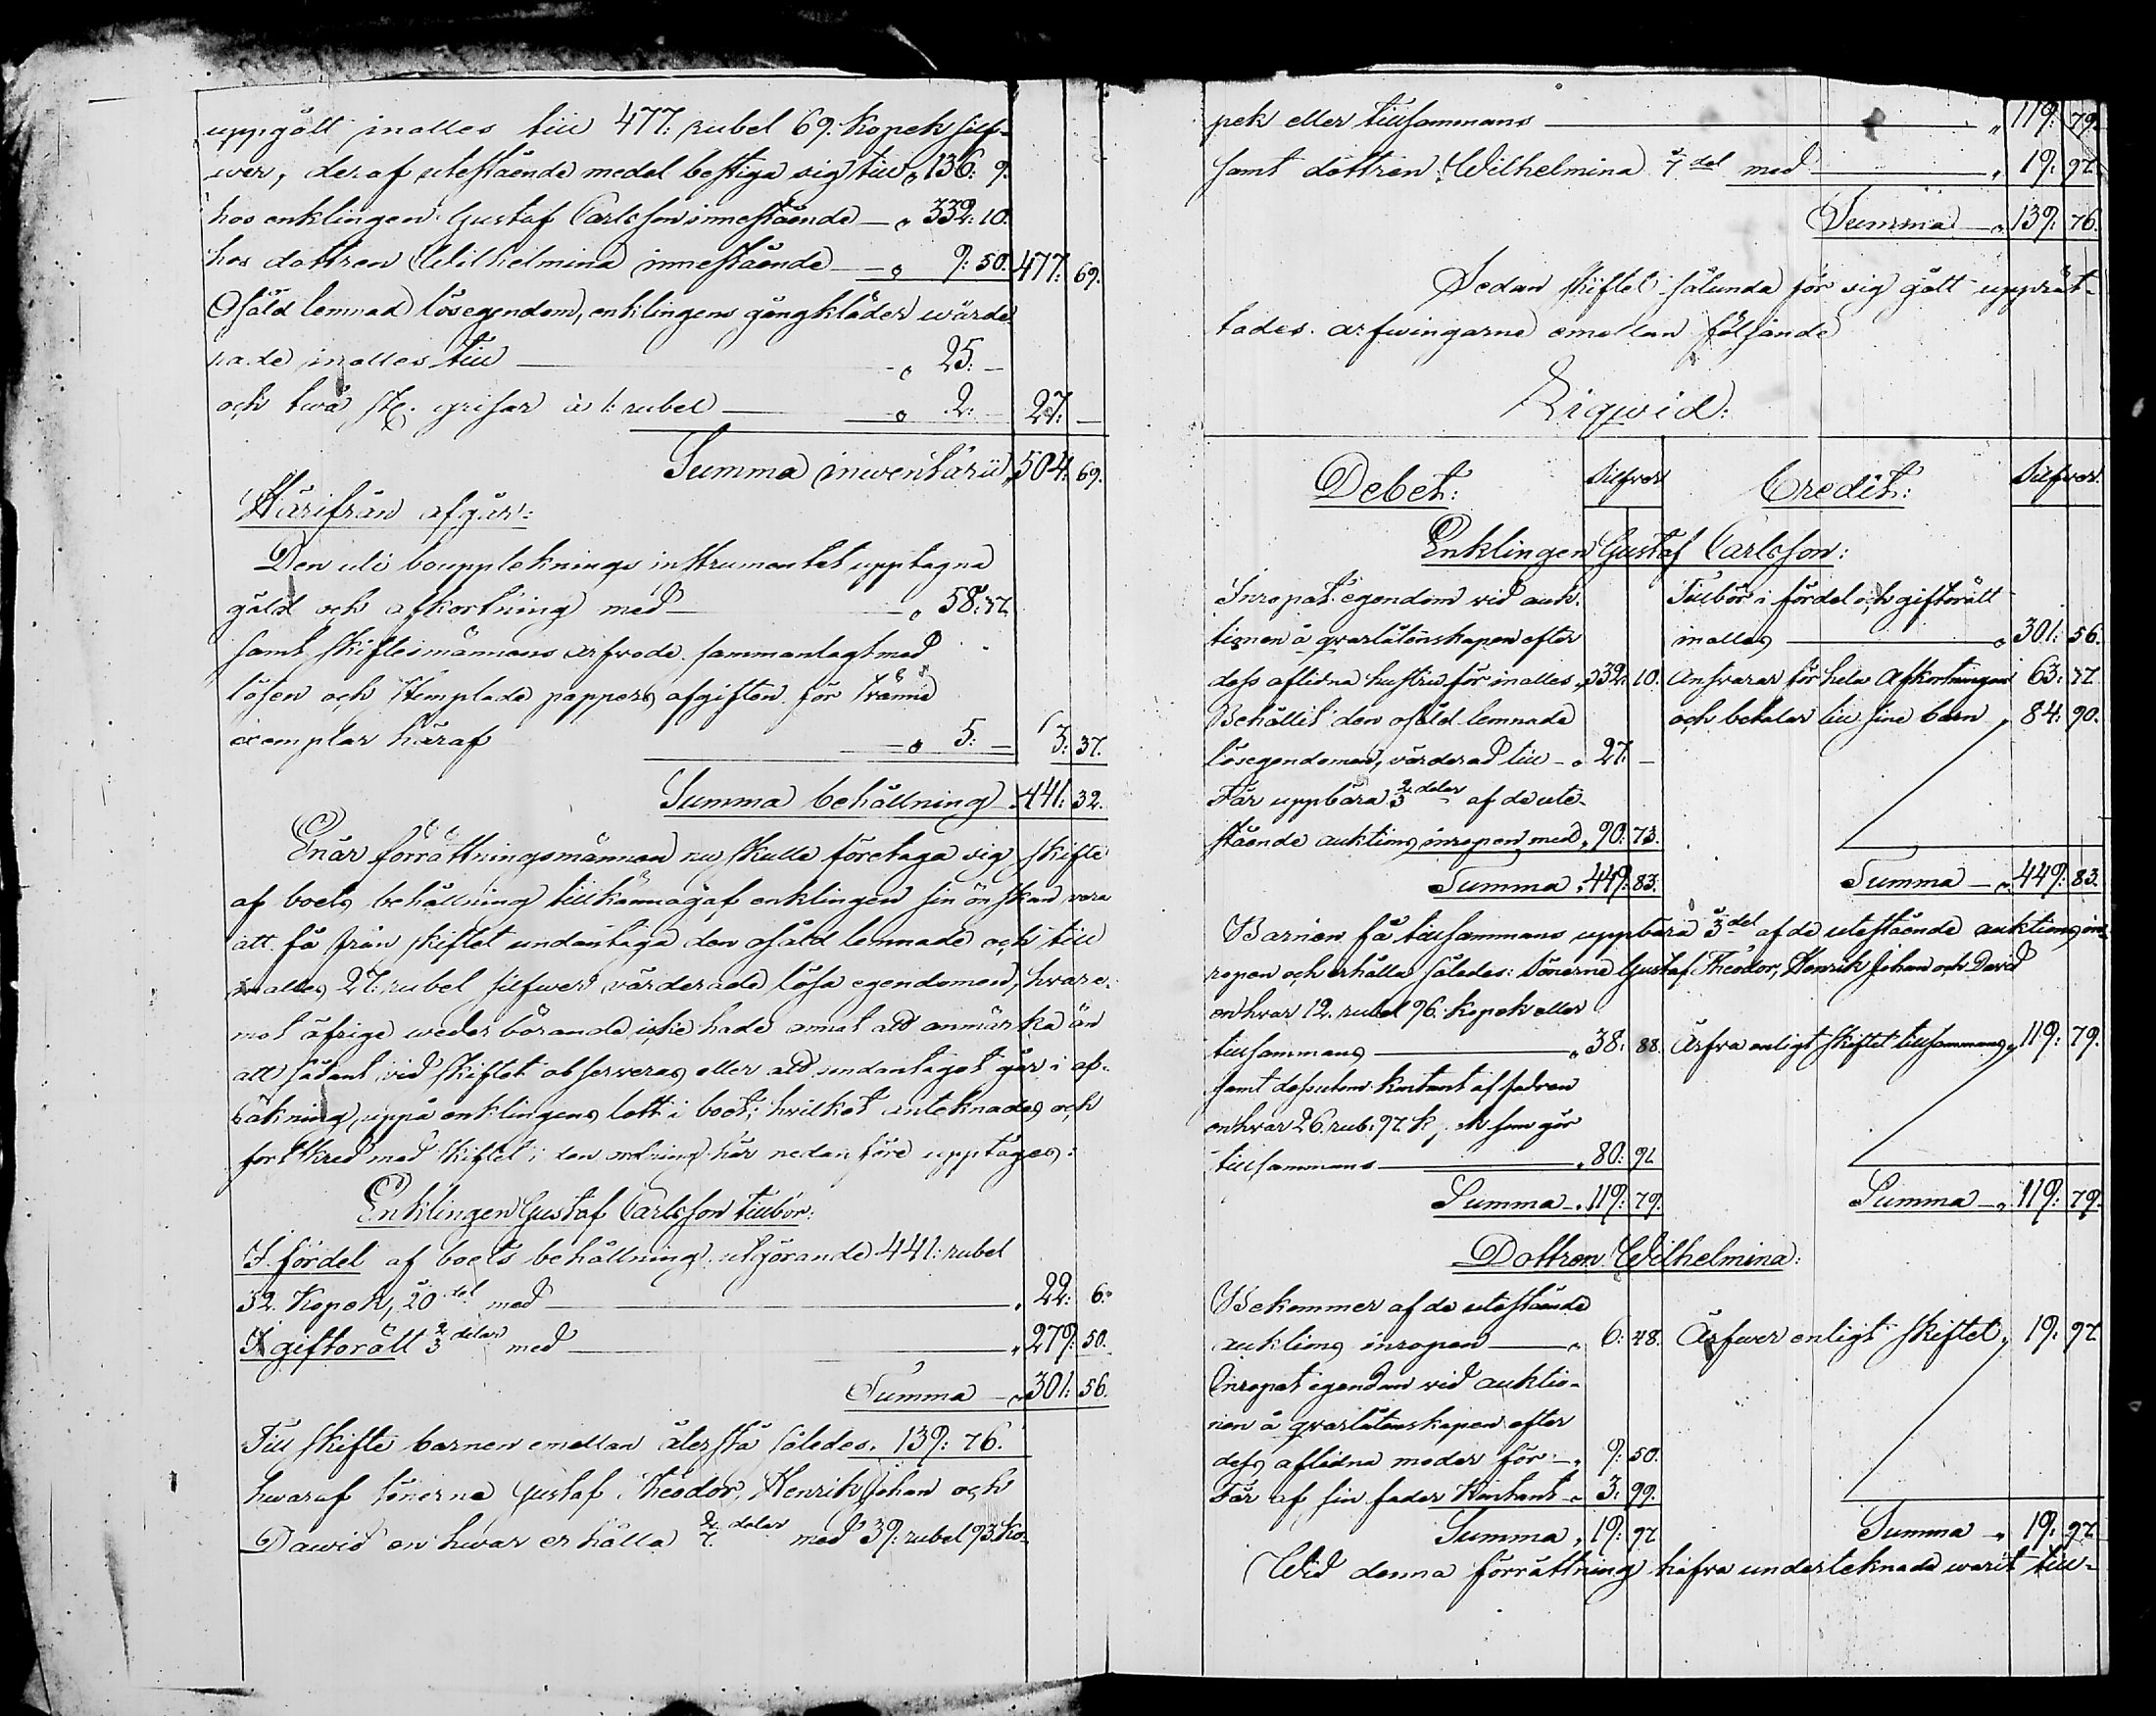 uppgått inalles till 477: rubel 69. Kopek silf-
wer, deraf utestående medel bestiga sig till „ 136: 9.
hos enklingen Gustaf Carlsson innestående — „ 332: 10.
hos dottren Wilhelmina innestående — „ 9: 50. 477: 69.
Osåld lemnad lösegendom, enklingens gångkläder wärde-
rade inalles till — „ 25: —
och twå st. grisar à 1: rubel — „ 2: — 27: —
Summa inventarii „ 504: 69.
Härifrån afgår:
Den uti bouppteknings instrumentet upptagne
gäld och afkortning med — „ 58: 37.
samt skiftesmännens arfvode sammanlagt med
lösen och Stemplade pappers afgiften för trenne
exemplar häraf — „ 5: — 63: 37.
Summa behållning „ 441: 32.
Enär förrättningsmännen nu skulle företaga sig skifte
af boets behållning tillkännagaf enklingen sin önskan vara
att få från skiftet undantaga den osåld lemnade och till
inalles 27: rubel silfwer värderade lösa egendomen, hware-
mot öfrige wederbörande icke hade annat att anmärka än
att sådant vid skiftet observeras eller att undantaget går i af-
räkning uppå enklingens lott i boet; hvilket anteknades och
fortskred med skiftet i den ordning här nedanföre upptages:
Enklingen Gustaf Carlsson tillbör:
I fördel af boets behållning utgörande 441: rubel
32. Kopek, 20 del med — „ 22: 6.
I giftorätt 2/3 delar med — „ 279: 50.
Summa — „ 301: 56.
Till skifte barnen emellan återstå således „ 139: 76.
hwaraf sönerne Gustaf Theodor, Henrik Johan och
Dawid en hwar erhålla 2/7 delar med 39: rubel 93. Ko-
pek eller tillsammans — „ 119: 79.
samt dottren Wilhelmina 1/7 del med — „ 19: 97.
Summa — „ 139: 76.
Sedan skiftet sålunda för sig gått upprät-
tades arfwingarne emellan följande
Liqvid:
Debet: Silfver Credit: Silfver.
Enklingen Gustaf Carlsson:
Inropat egendom vid auk- Tillbör i fördel och giftorätt
tionen å qvarlåtenskapen efter inalles — „ 301: 56.
dess aflidna hustru för inalles „ 332: 10. Ansvarar för hela Afkortningen 63: 37.
Behållit den osåld lemnade och betalar till sine barn „ 84: 90.
lösegendomen, värderad till — „ 27: —
Får uppbära 2/3 delar af de ute-
stående auktions inropen med „ 90: 73.
Summa „ 449: 83. Summa — „ 449: 83.
Barnen få tillsammans uppbära 1/3 del af de utestående auktions in-
ropen och erhålla således: Sönerne Gustaf Theodor, Henrik Johan och David
en hvar 12. rubel 96. kopek eller
tillsammans — „ 38: 88. Ärfva enligt skiftet tillsammans „ 119: 79.
samt dessutom kontant af fadren
en hvar 26. rub. 97. k, som gör
tillsammans — „ 80: 91.
Summa — „ 119: 79. Summa — „ 119: 79.
Dottren Wilhelmina:
Bekommer af de utestående
auktions inropen — „ 6: 48. Ärfwer enligt skiftet „ 19: 97.
Inropat egendom vid auktio-
nen å qvarlåtenskapen efter
dess aflidna moder för — „ 9: 50.
Får af sin fader Kontant „ 3: 99.
Summa „ 19: 97. Summa — „ 19: 97.
Wid denna förrättning hafva undertecknade warit till-